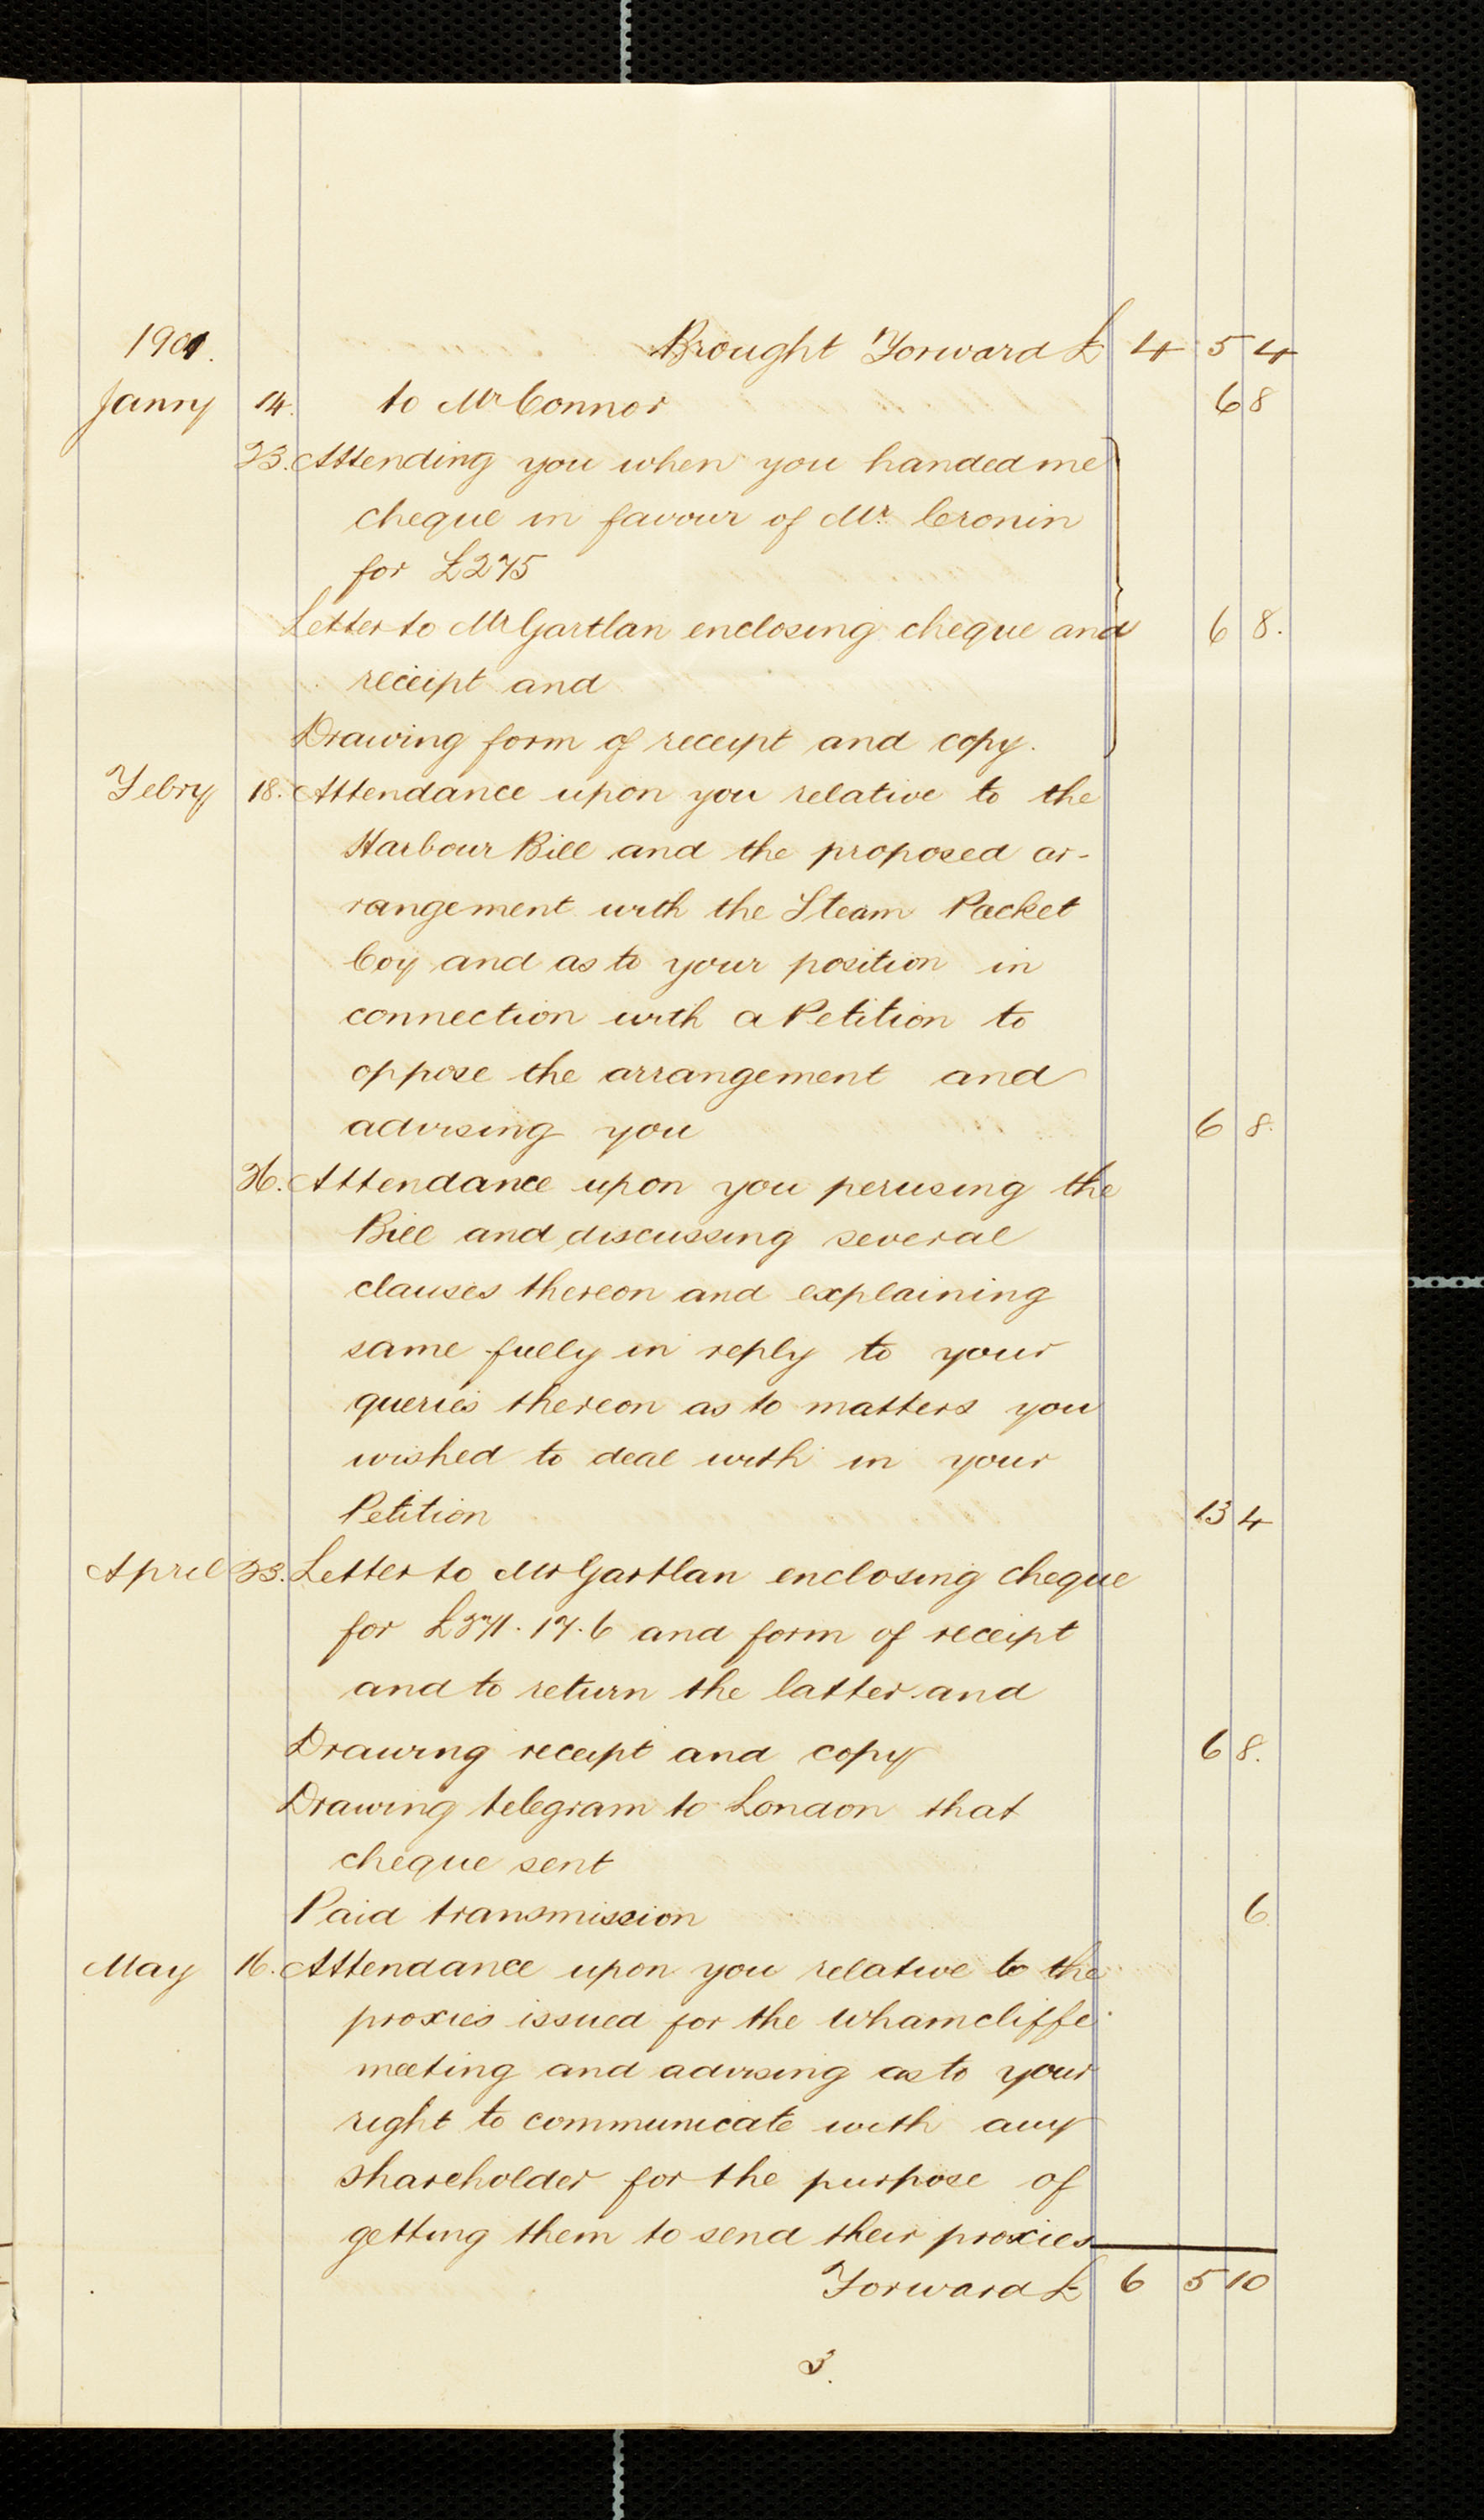 1901. Brought Forward £ 4 5 4
Janny 14. to Mr Connor 6 8
23. Attending you when you handed me
cheque in favour of Mr. Cronin
for £275
Letter to Mr Gartlan enclosing cheque and 6 8.
receipt and
Drawing form of receipt and copy.
Febry 18. Attendance upon you relative to the
Harbour Bill and the proposed ar-
rangement with the Steam Packet
Coy and as to your position in
connection with a Petition to
oppose the arrangement and
advising you 6 8.
26. Attendance upon you perusing the
Bill and discussing several
clauses thereon and explaining
same fully in reply to your
queries thereon as to matters you
wished to deal with in your
Petition 13 4
April 23. Letter to Mr Gartlan enclosing cheque
for £271.17.6 and form of receipt
and to return the latter and
Drawing receipt and copy 6 8.
Drawing telegram to London that
cheque sent
Paid transmission 6
May 16. Attendance upon you relative to the
proxies issued for the Wharncliffe
meeting and advising as to your
right to communicate with any
shareholder for the purpose of
getting them to send their proxies
Forward £ 6 5 10
3.